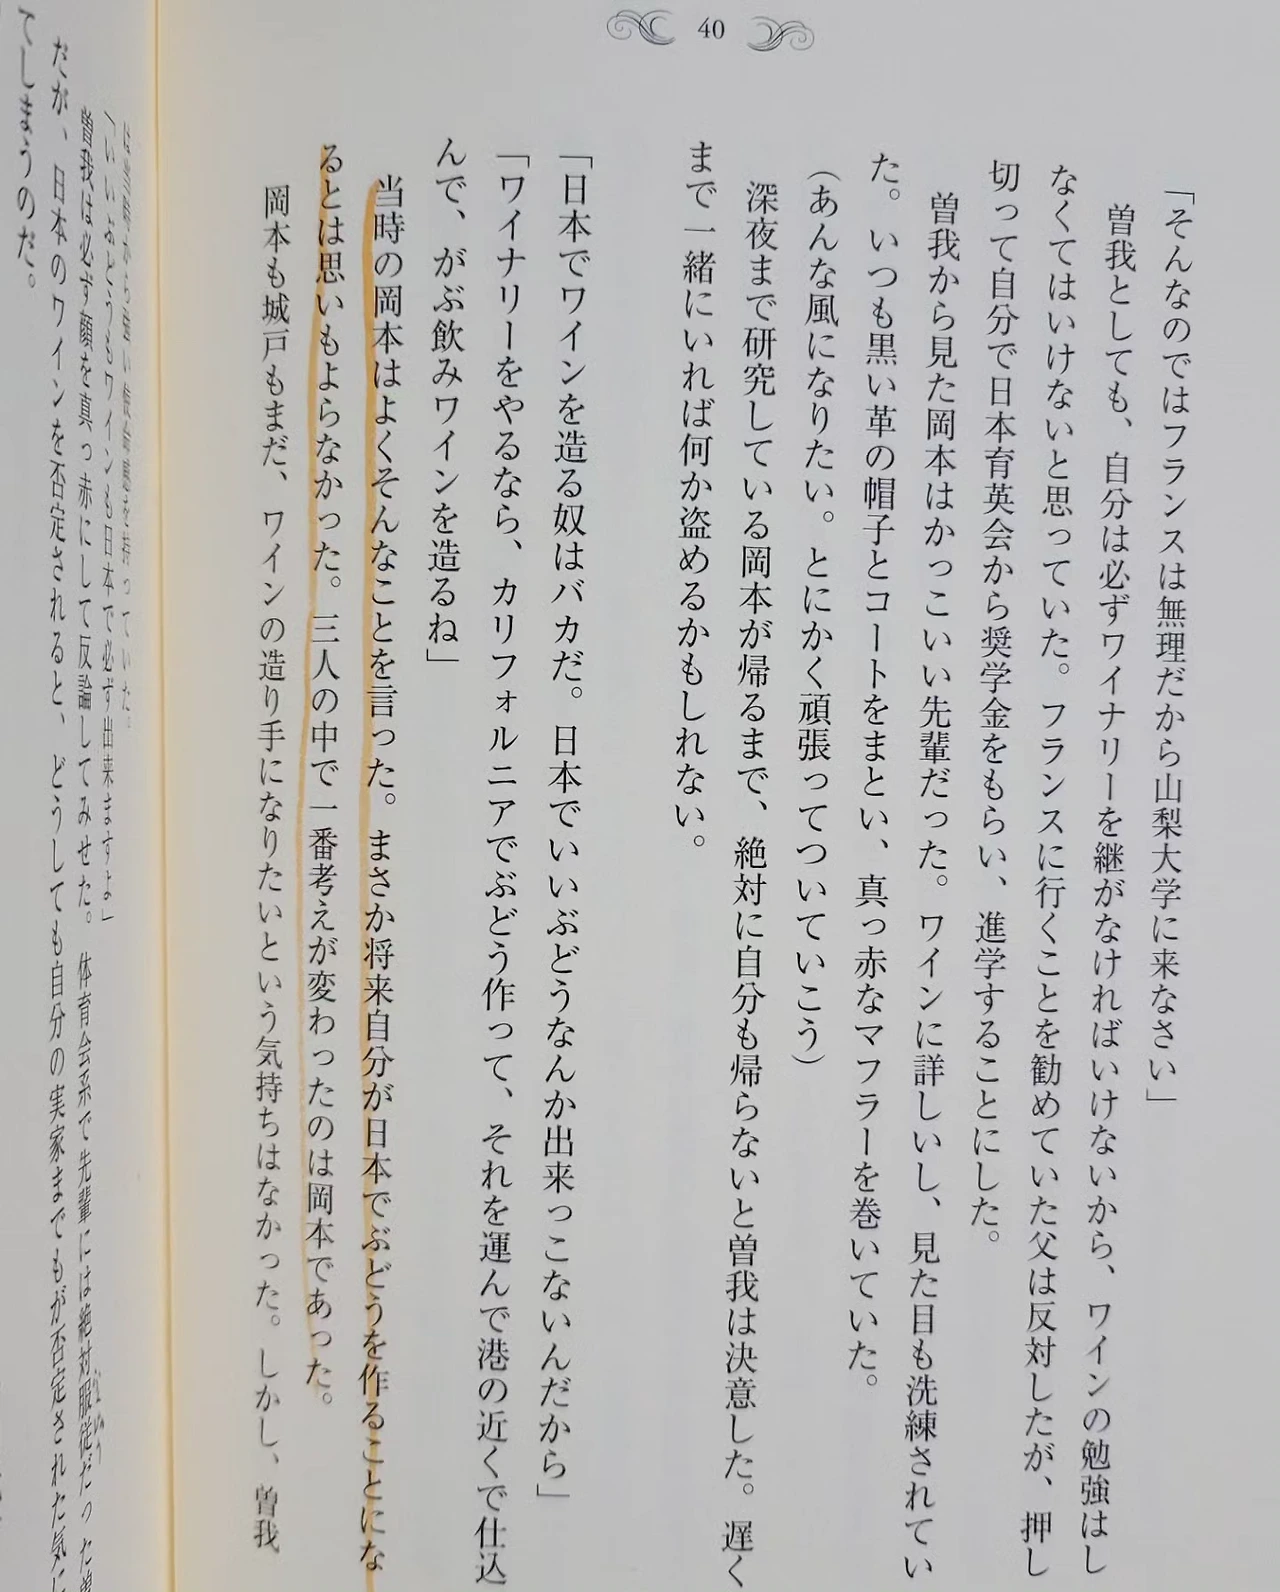 40
「そんなのではフランスは無理だから山梨大学に来なさい」
曽我としても、自分は必ずワイナリーを継がなければいけないから、ワインの勉強はし
なくてはいけないと思っていた。フランスに行くことを勧めていた父は反対したが、押し
切って自分で日本育英会から奨学金をもらい、進学することにした。
曽我から見た岡本はかっこいい先輩だった。ワインに詳しいし、見た目も洗練されてい
た。いつも黒い革の帽子とコートをまとい、真っ赤なマフラーを巻いていた。
（あんな風になりたい。とにかく頑張ってついていこう）
深夜まで研究している岡本が帰るまで、絶対に自分も帰らないと曽我は決意した。遅く
まで一緒にいれば何か盗めるかもしれない。
「日本でワインを造る奴はバカだ。日本でいいぶどうなんか出来っこないんだから」
「ワイナリーをやるなら、カリフォルニアでぶどう作って、それを運んで港の近くで仕込
んで、がぶ飲みワインを造るね」
当時の岡本はよくそんなことを言った。まさか将来自分が日本でぶどうを作ることにな
るとは思いもよらなかった。三人の中で一番考えが変わったのは岡本であった。
岡本も城戸もまだ、ワインの造り手になりたいという気持ちはなかった。しかし、曽我
を持っていた。
「いいぶどうもワインも日本で必ず出来ますよ」
曽我は必ず顔を真っ赤にして反論してみせた。体育会系で先輩には絶対服従だった
だが、日本のワインを否定されると、どうしても自分の実家までもが否定された気に
てしまうのだ。